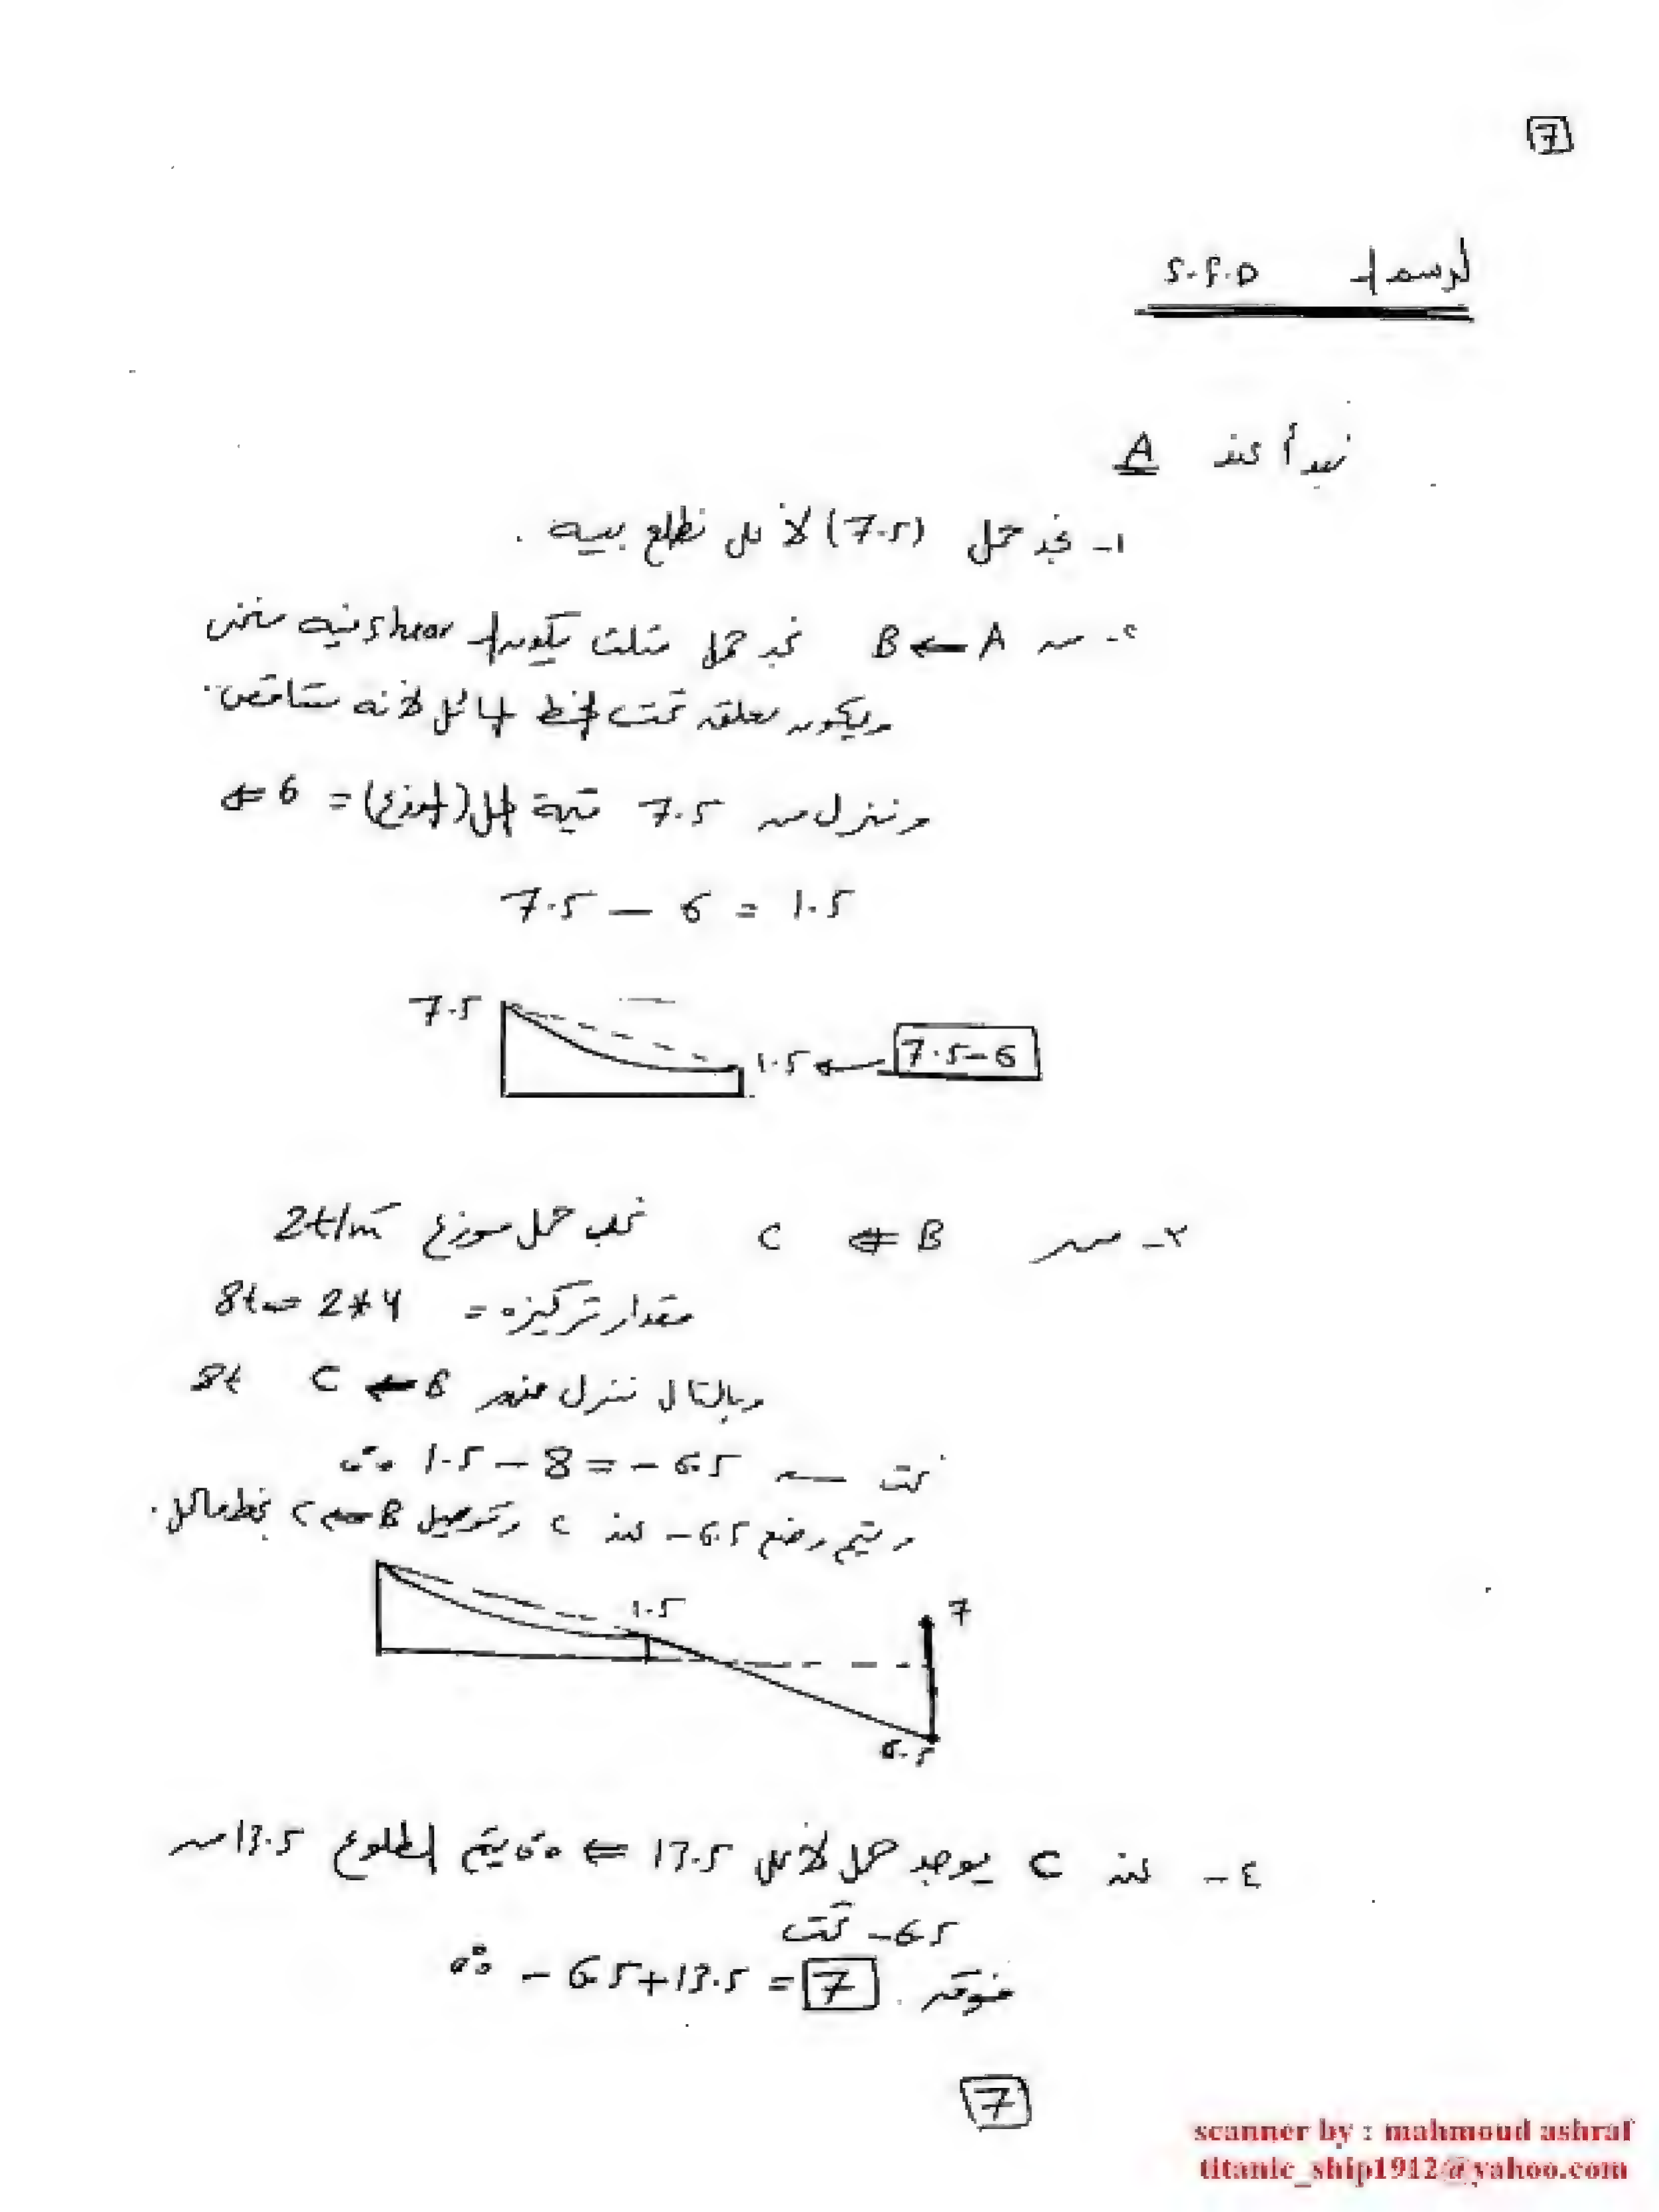 7
لرسم الـ S.F.D
نبدأ عند A
١- نجد حمل (7.5) لأعلى نطلع بيه .
٢- من A ← B نجد حمل مثلث يكون الـ shear فيه منحنى
ويكون معلق تحت الخط المائل لأنه متناقص.
وننزل من 7.5 قيمة الـ (الموزع) = 6 ⇐
7.5 - 6 = 1.5
7.5
1.5 ← 7.5-6
٣- من B ⇐ C نجد حمل موزع 2t/m
مقدار تركيزه = 2*4 = 8t
وبالتالى ننزل من B ← C 8t
تحت ∴ 1.5 - 8 = - 6.5
ويتم وضع 6.5- عند C وتوصيل B ← C بخط مائل.
1.5
7
6.5
٤- عند C يوجد حمل لأعلى 13.5 ⇐ يتم الطلوع 13.5 من
6.5- تحت
∴ - 6.5+13.5 = 7 فوق .
7
scanner by : mahmoud ashraf
titanic_ship1912@yahoo.com